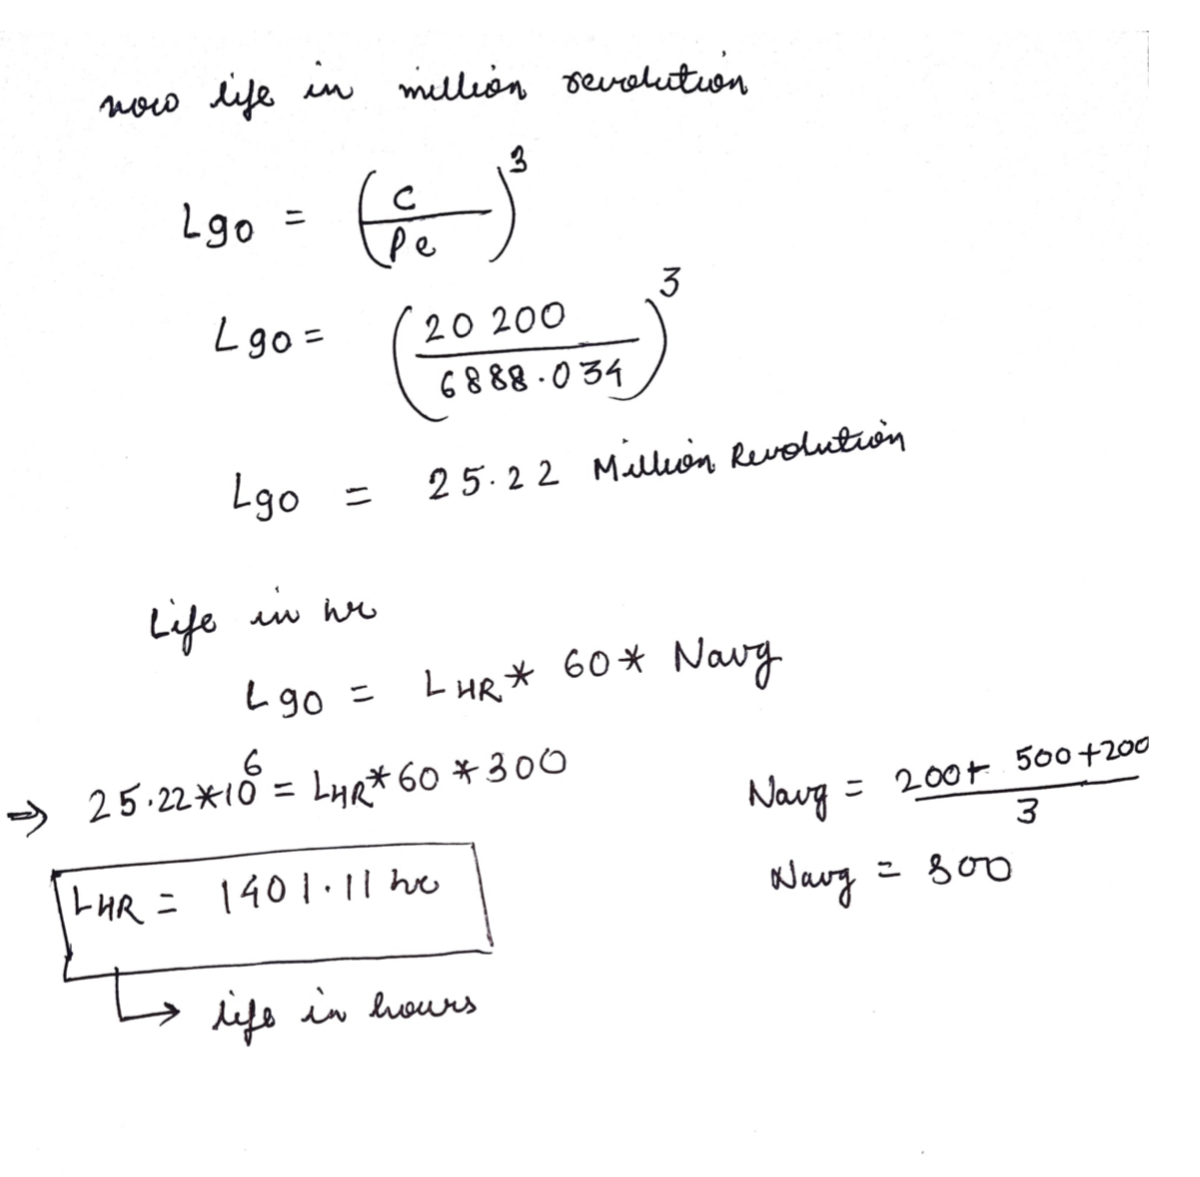 now life in million revolution
L90 = (C / Pe)^3
L90 = (20 200 / 6888.034)^3
L90 = 25.22 Million Revolution
Life in hr
L90 = LHR * 60 * Navg
⇒ 25.22*10^6 = LHR*60*300
Navg = (200+ 500+200) / 3
Navg = 300
LHR = 1401.11 hr
↳ life in hours